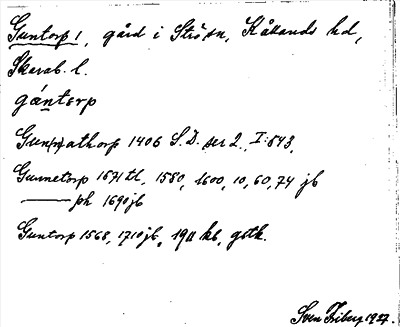 Guntorp 1, gård i Strö sn, Kållands hd,
Skarab. l.
gántεrp
Gun(n)athorp 1406 S.D. ser 2. I:543,
Gunnetorp 1571 tl, 1580, 1600, 10, 60, 74 jb
——— ph 1690 jb
Guntorp 1568, 1710 jb, 1911 kb, gstk.
Sven Friberg 1927.